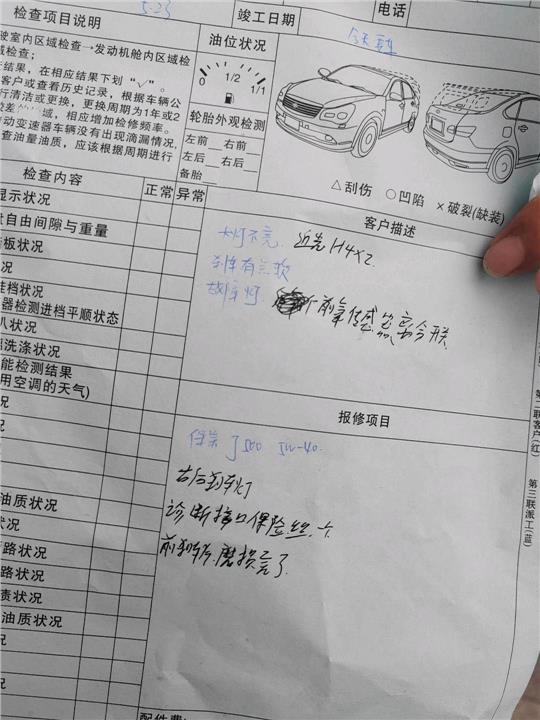 5.23
竣工日期
电话
检查项目说明
油位状况
今天车
驶室内区域检查→发动机舱内区域检
域检查；
结果，在相应结果下划"√"。
客户或查看历史记录，根据车辆公
行清洁或更换，更换周期为1年或2
域，相应增加检修频率。
动变速器车辆没有出现滴漏情况，
查油量油质，应该根据周期进行
0 1/2 1/1
轮胎外观检测
左前 右前
左后 右后
备胎
△刮伤 ○凹陷 ×破裂(缺装)
检查内容 正常 异常
客户描述
显示状况
自由间隙与重量
板状况
况
挂档状况
器检测进档平顺状态
八状况
洗涤状况
能检测结果
用空调的天气)
况
大灯不亮 近光H4X2
刹车有点软
故障灯 前氧传感器
报修项目
保养 J500 5W-40
右后刹车灯
诊断接口保险丝
前刹车 磨损
第二联客户(红)
第三联派工(蓝)
况
油质状况
状况
路状况
路状况
渍状况
况
况
配件费